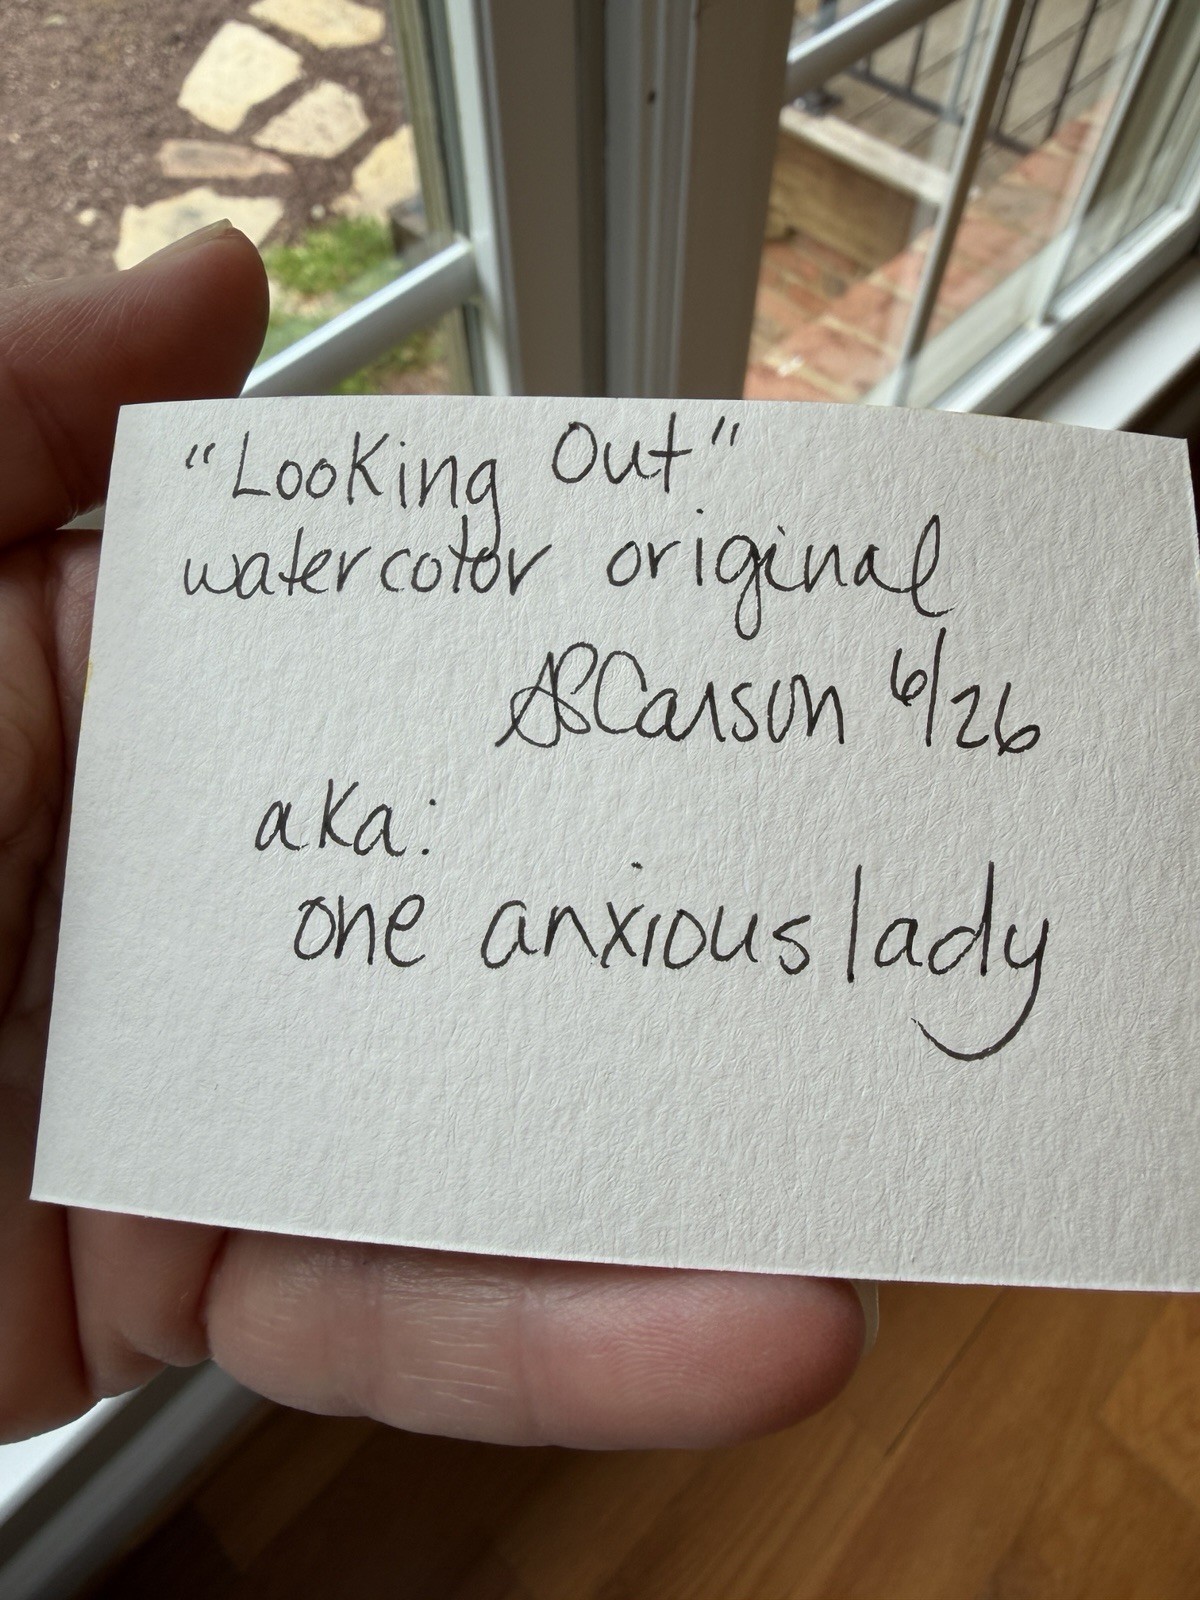 "Looking Out"
watercolor original
ASCarson 6/26
aka:
one anxious lady